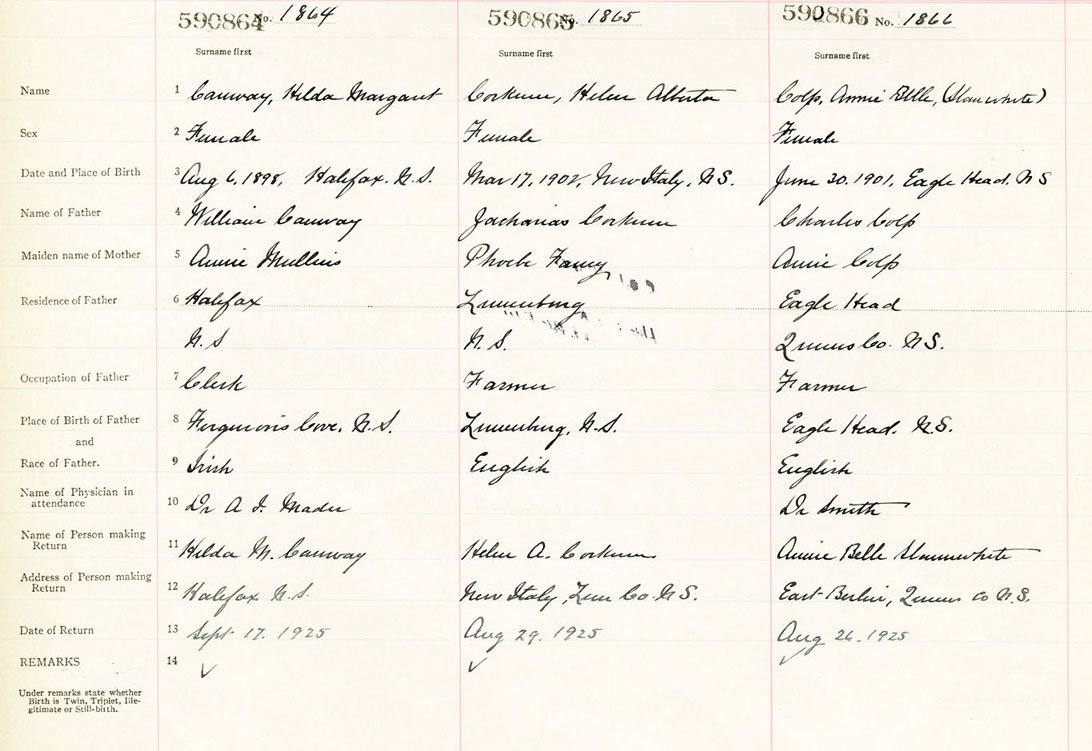 590864 No. 1864 590865 No. 1865 590866 No. 1866
Surname first Surname first Surname first
Name 1 Conway, Hilda Margaret Corkum, Helen Alberta Colp, Annie Belle, (Slaunwhite)
Sex 2 Female Female Female
Date and Place of Birth 3 Aug 6, 1898, Halifax. N.S. Mar 17, 1902, New Italy, N.S. June 20. 1901, Eagle Head. N S
Name of Father 4 William Conway Zacharias Corkum Charles Colp
Maiden name of Mother 5 Annie Mullins Phoeb Fancy Annie Colp
Residence of Father 6 Halifax Lunenburg Eagle Head
N.S N.S. Queens Co. N.S.
Occupation of Father 7 Clerk Farmer Farmer
Place of Birth of Father 8 Fergusons Cove, N.S. Lunenburg, N.S. Eagle Head. N.S.
and
Race of Father. 9 Irish English English
Name of Physician in
attendance 10 Dr A. F. Mader Dr Smith
Name of Person making
Return 11 Hilda M. Conway Helen A. Corkum Annie Belle Slaunwhite
Address of Person making
Return 12 Halifax N.S. New Italy, Lun Co. N.S. East Berlin, Queens Co N.S.
Date of Return 13 Sept 17. 1925 Aug 29. 1925 Aug 26. 1925
REMARKS 14 √ √ √
Under remarks state whether
Birth is Twin, Triplet, Ille-
gitimate or Still-birth.